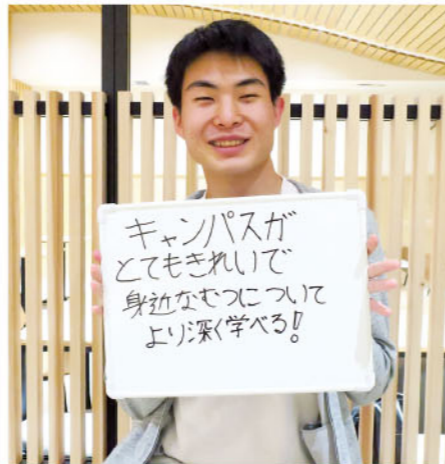 キャンパスが
とてもきれいで
身近なむつについて
より深く学べる!